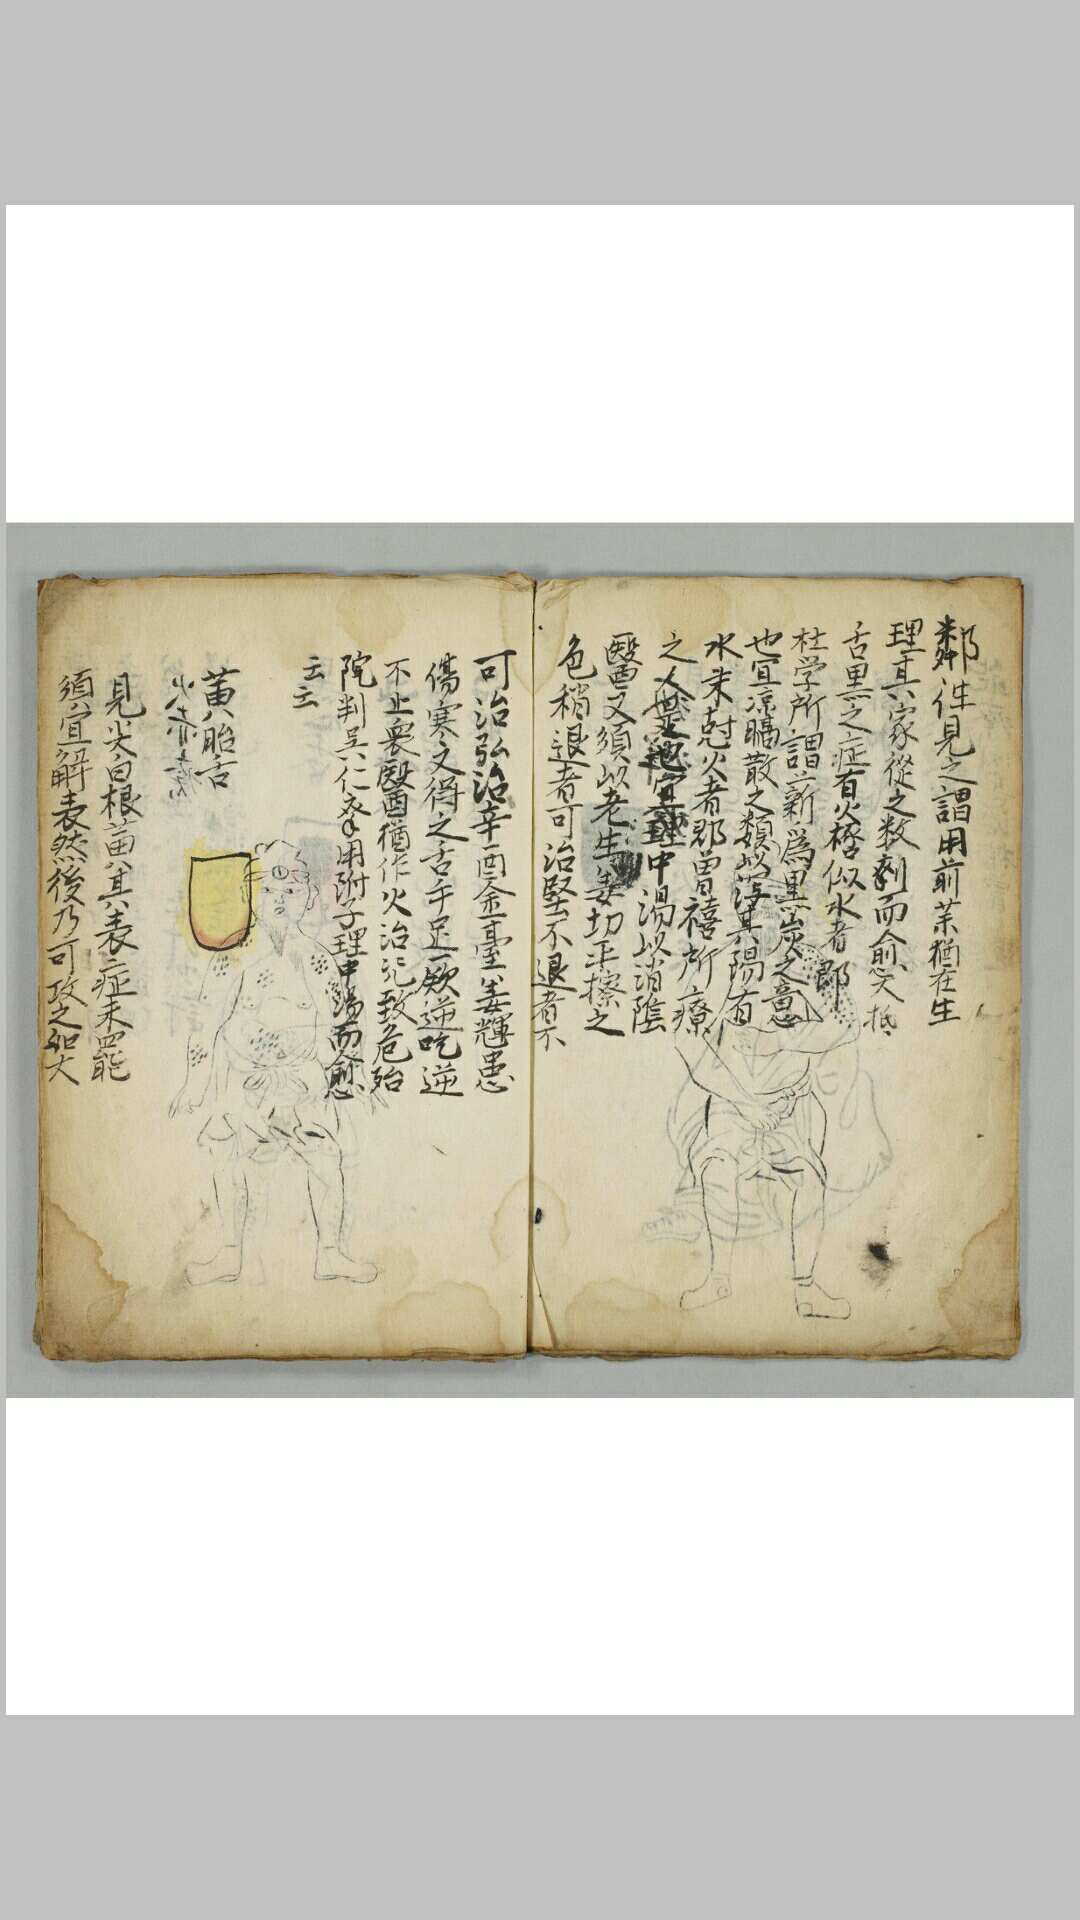 鄰往見之謂用前茱猶在生
理其家從之数剤而愈大抵
舌黒之症有火極似水者郎
杜学所謂薪為黒炭之意
也宜凉膈散之類以瀉其陽有
水来尅火者郎曽禧所療
之人是也宜理中湯以消陰
醫又須以老生姜切平擦之
色稍退者可治堅不退者不
可治弘治辛酉金臺姜輝患
傷寒文得之舌手足厥逆吃逆
不止衆醫猶作火治几致危殆
院判吴仁斎用附子理中湯而愈
云云
黄胎舌
見尖白根黄其表症未罷
須宜解表然後乃可攻之如大